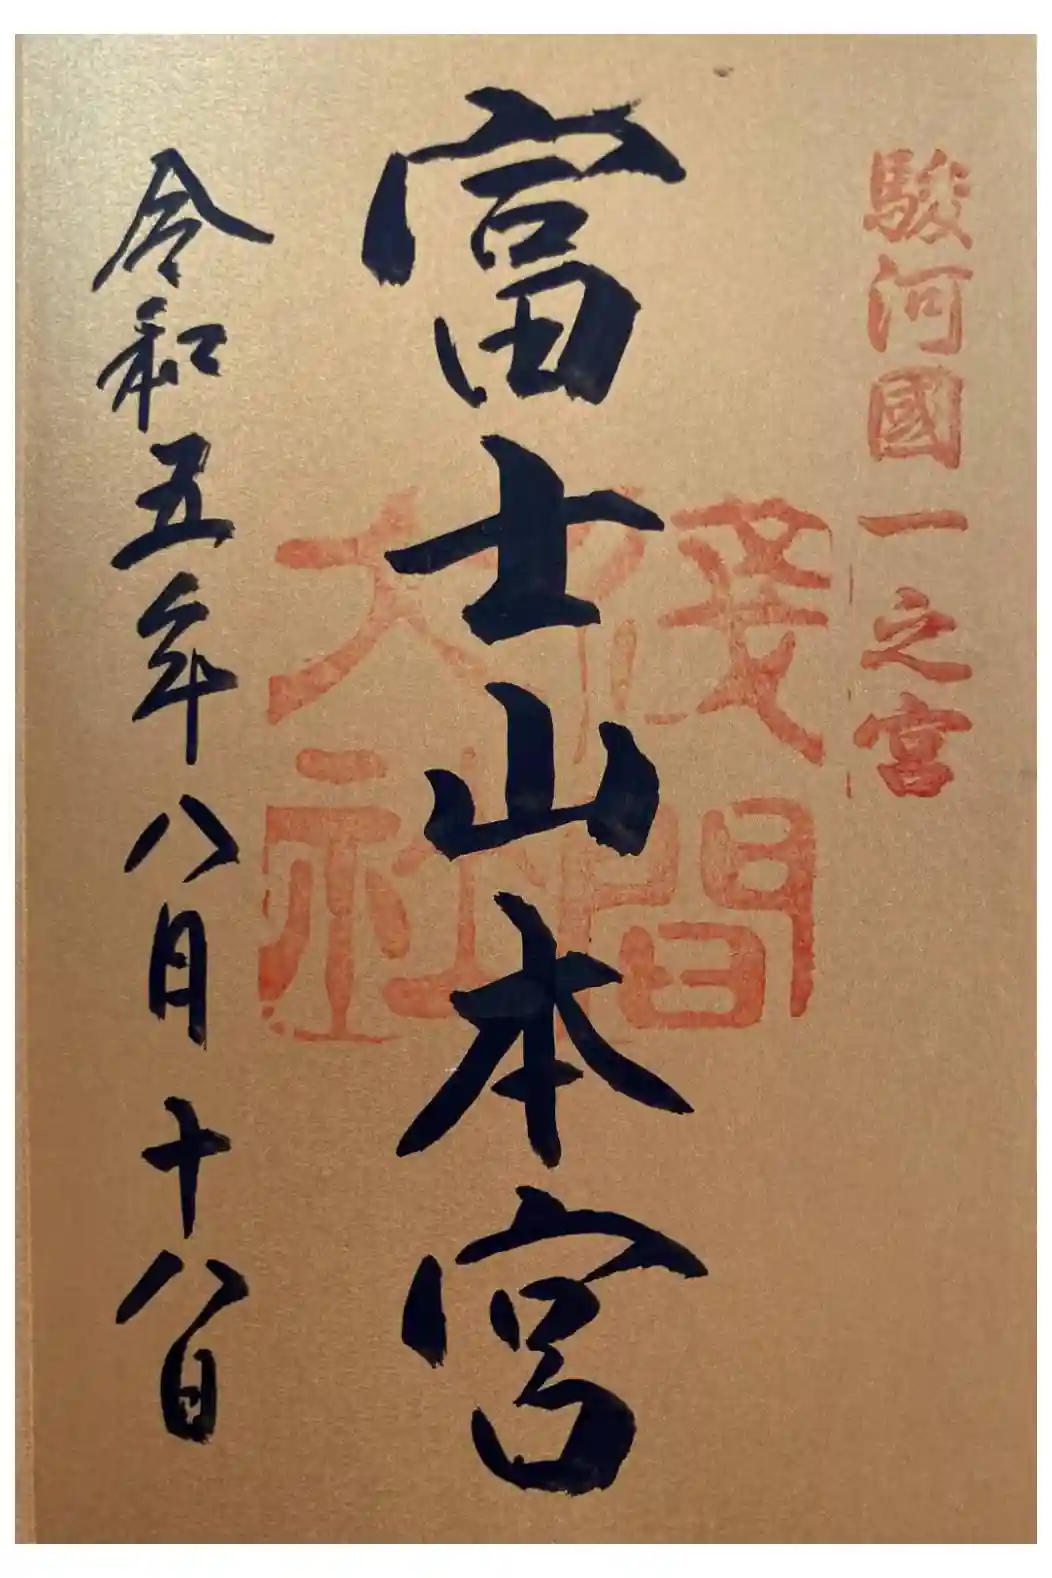 駿河國一之宮
富士山本宮
淺間
大社
令和五年八月十八日